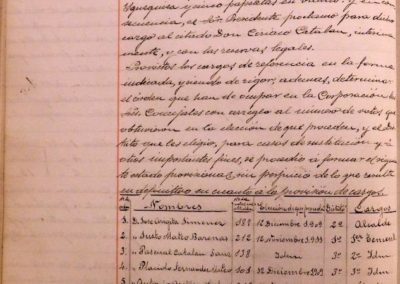 Izquierda y cinco papeletas en blanco. y en con-
secuencia, el Sr. Presidente proclamó para dicho
cargo al citado Don Ciriaco Catalan, interina-
mente, y con las reservas legales.
Provistos los cargos de referencia en la forma
indicada, y siendo de rigor, ademas, determinar
el órden que han de ocupar en la Corporación los
Sres. Concejales con arreglo al número de votos que
obtuvieron en la eleccion de que proceden, y el Dis-
trito que les eligió, para casos de sustitucion y á
otros importantes fines, se procedió a formar el siguien-
te estado provisional, sin perjuicio de lo que resulte
en definitivo en cuanto á la provisión de cargos.
Nombres Elección de que proceden Distrito Cargos
1. D. José Jimenez 189 12 Diciembre 1909 2º Alcalde
2. " Justo Mateo 212 12 Noviembre 1911 1º 1er Teniente
3. " Pascual Catalan Sanz 138 Idm 3º 2º Idm
4. " Placido Fernandez 108 12 Diciembre 1909 3º 3º Idm